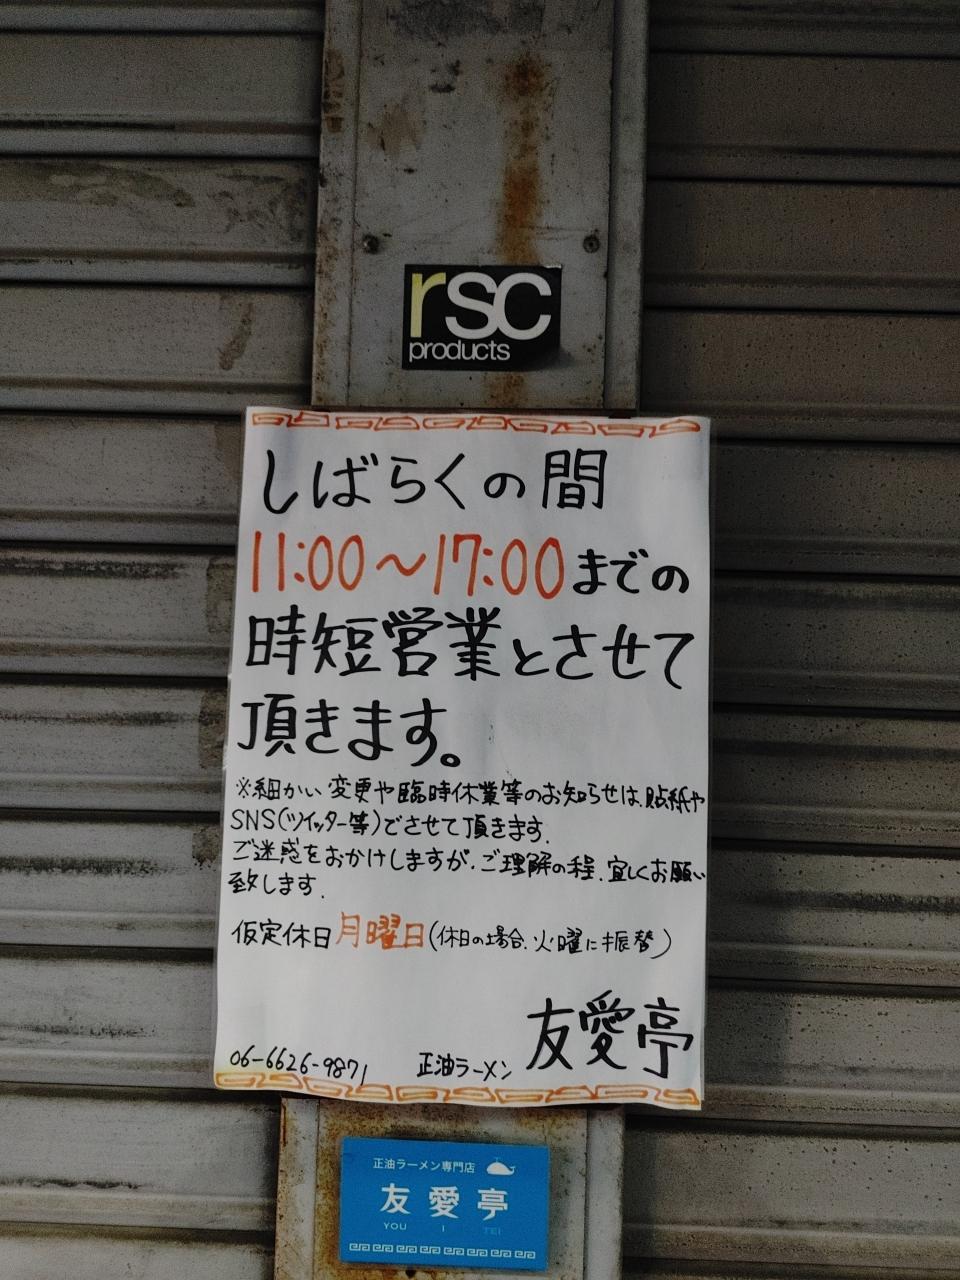 rsc
products
しばらくの間
11:00〜17:00までの
時短営業とさせて
頂きます。
※細かい変更や臨時休業等のお知らせは、貼紙や
SNS(ツイッター等)でさせて頂きます.
ご迷惑をおかけしますが、ご理解の程、宜しくお願い
致します.
仮定休日月曜日(休日の場合、火曜に振替)
友愛亭
06-6626-9871 正油ラーメン
正油ラーメン専門店
友愛亭
YOU I TEI